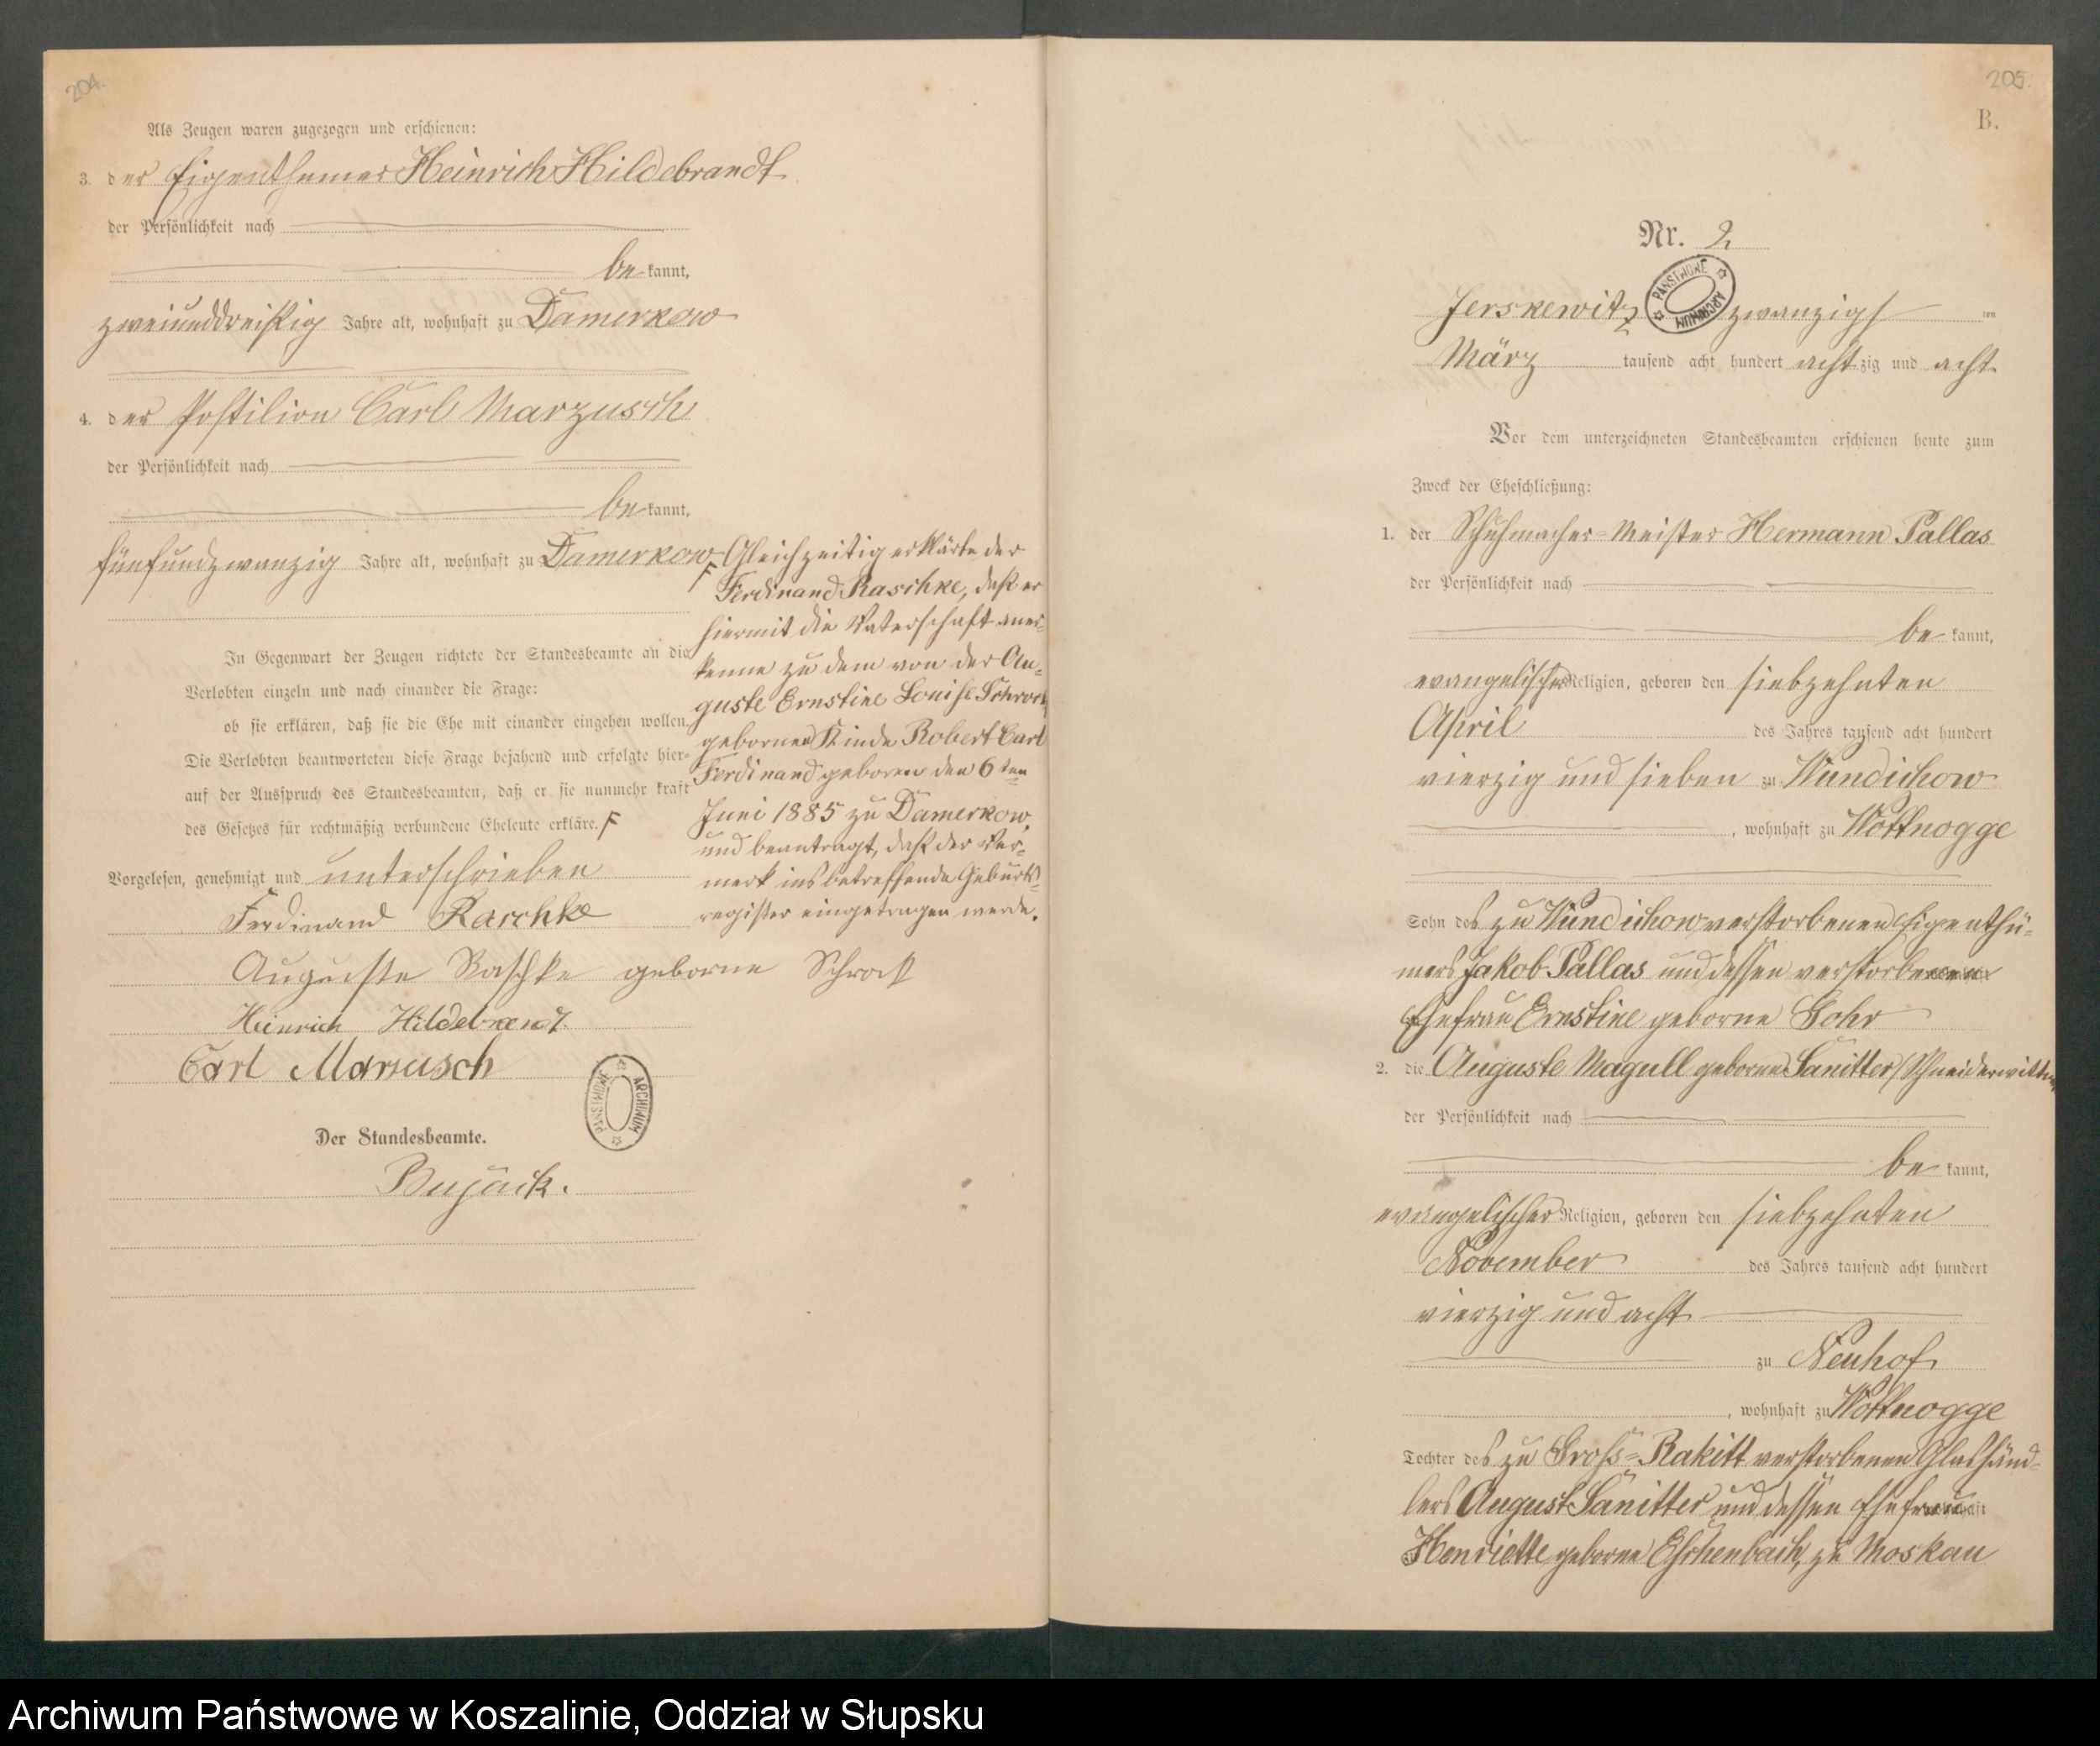 204.
Als Zeugen waren zugezogen und erschienen:
3. der Eigenthümer Heinrich Hildebrandt
der Persönlichkeit nach
be kannt,
zweiunddreißig Jahre alt, wohnhaft zu Damerkow
4. der Postilion Carl Marzusch
der Persönlichkeit nach
be kannt,
fünfundzwanzig Jahre alt, wohnhaft zu Damerkow
In Gegenwart der Zeugen richtete der Standesbeamte an die
Verlobten einzeln und nach einander die Frage:
ob sie erklären, daß sie die Ehe mit einander eingehen wollen.
Die Verlobten beantworteten diese Frage bejahend und erfolgte hier-
auf der Ausspruch des Standesbeamten, daß er sie nunmehr kraft
des Gesetzes für rechtmäßig verbundene Eheleute erkläre. F
F Gleichzeitig erklärte der
Ferdinand Raschke, daß er
hiermit die Vaterschaft aner-
kenne zu dem von der Au-
guste Ernstine Louise Schrock
gebornen Kinde Robert Carl
Ferdinand geboren den 6ten
Juni 1885 zu Damerkow,
und beantragt, daß der Ver-
merk ins betreffende Geburts-
register eingetragen werde.
Vorgelesen, genehmigt und unterschrieben
Ferdinand Raschke
Auguste Raschke geborne Schrock
Heinrich Hildebrandt.
Carl Marzusch
PAŃSTWOWE ARCHIWUM
Der Standesbeamte.
Bujack.
205.
B.
Nr. 2
Jerskewitz zwanzigs ten
PAŃSTWOWE ARCHIWUM
März tausend acht hundert acht zig und acht
Vor dem unterzeichneten Standesbeamten erschienen heute zum
Zweck der Eheschließung:
1. der Schuhmacher-Meister Hermann Pallas
der Persönlichkeit nach
be kannt,
evangelischer Religion, geboren den siebzehnten
April des Jahres tausend acht hundert
vierzig und sieben zu Wundichow
, wohnhaft zu Wottnogge
Sohn des zu Wundichow verstorbenen Eigenthü-
mers Jakob Pallas und dessen verstorbenen
Ehefrau Ernstine geborne Gohr
2. die Auguste Magull geborne Sanitter, Schneiderwittwe
der Persönlichkeit nach
be kannt,
evangelischer Religion, geboren den siebzehnten
November des Jahres tausend acht hundert
vierzig und acht
zu Neuhof
, wohnhaft zu Wottnogge
Tochter des zu Groß-Rakitt verstorbenen Glashänd-
lers August Sanitter und dessen Ehefrau
Henriette geborne Eschenbach, zu Moskau
Archiwum Państwowe w Koszalinie, Oddział w Słupsku